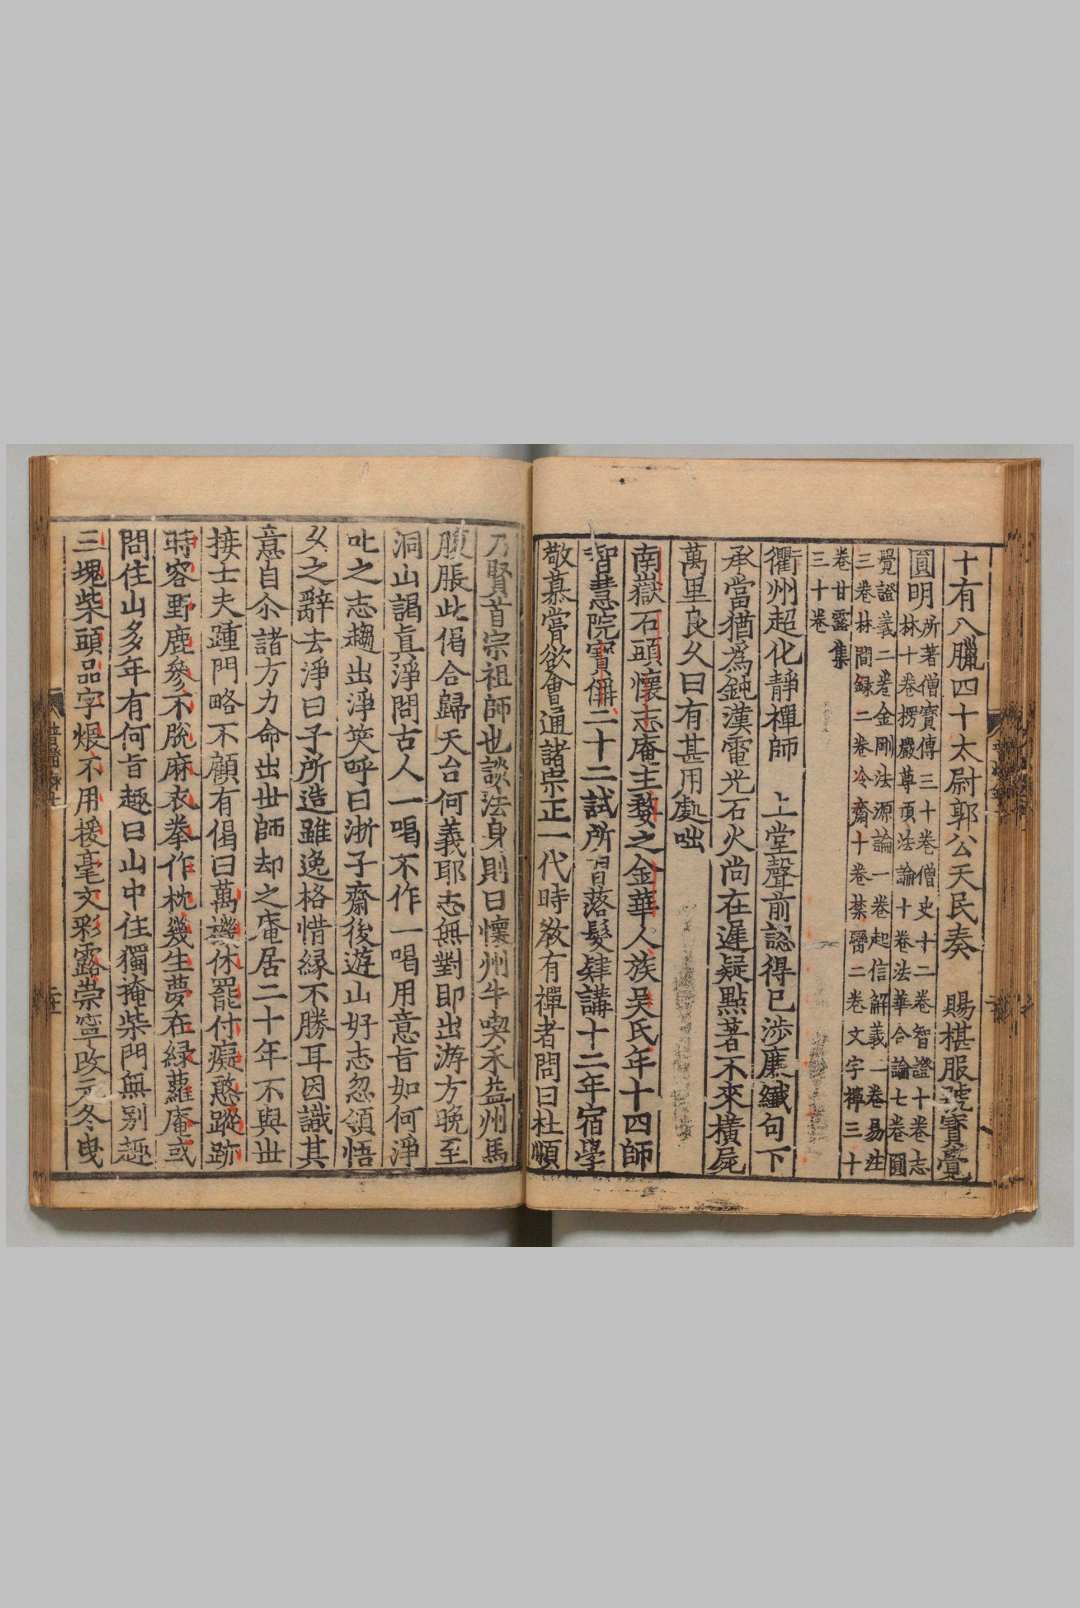 十有八臘四十太尉郭公天民奏　賜椹服號寶覺
圓明所著僧寶傳三十卷僧史十二卷智證十卷志
林十卷楞嚴尊頂法論十卷法華合論七卷圓
覺證義二卷金剛法源論一卷起信解義一卷易註
三卷林間録二卷冷齋十卷禁臠二卷文字禪三十
卷甘露集
三十卷
衢州超化靜禪師　上堂聲前認得已涉廉纖句下
承當猶為鈍漢電光石火尚在遲疑點著不來橫屍
萬里良久曰有甚用處咄
南嶽石頭懷志庵主婺之金華人族吳氏年十四師
智慧院寶偁二十二試所習落髮肄講十二年宿學
敬慕嘗欲會通諸宗正一代時教有禪者問曰杜順
乃賢首宗祖師也談法身則曰懷州牛喫禾益州馬
腹脹此偈合歸天台何義耶志無對即出游方晚至
洞山謁真淨問古人一喝不作一喝用意旨如何淨
叱之志趨出淨笑呼曰浙子齋後遊山好志忽領悟
久之辭去淨曰子所造雖逸格惜緣不勝耳因識其
意自尒諸方力命出世師却之庵居二十年不與世
接士夫踵門略不顧有偈曰萬機休罷付癡憨蹤跡
時容野鹿參不脫麻衣拳作枕幾生夢在綠蘿庵或
問住山多年有何旨趣曰山中住獨掩柴門無別趣
三塊柴頭品字煨不用援毫文彩露崇寧改元冬曳